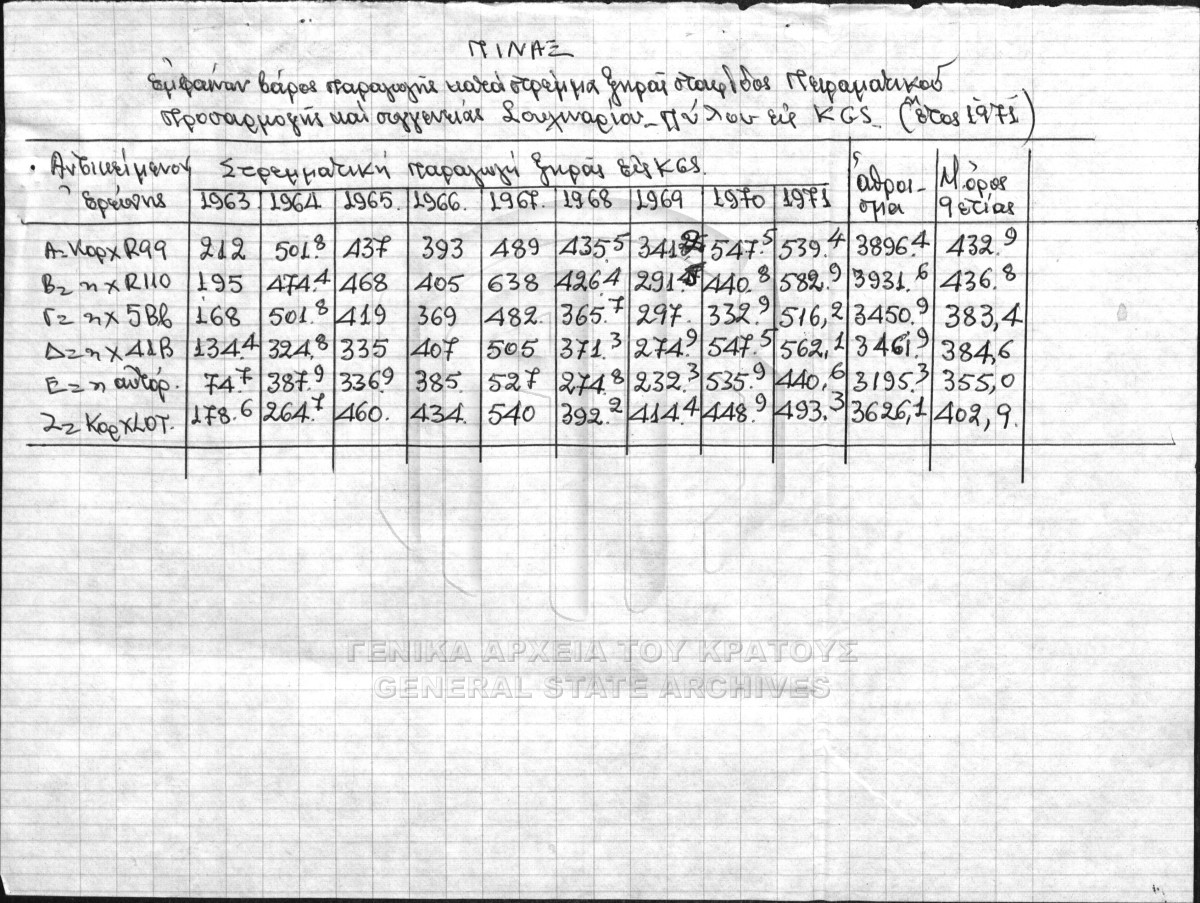 ΠΙΝΑΞ
Εμφαίνων βάρος παραγωγής κατά στρέμμα ξηράς σταφίδος Πειραματικού
προσαρμογής και συγγενείας Σουληναρίου - Πύλου εις KGS. (έτος 1971)
Αντικείμενον Στρεμματική παραγωγή ξηράς εις KGS. άθροι- Μ. όρος
ερεύνης 1963 1964 1965. 1966. 1967. 1968 1969 1970 1971 σμα 9ετίας
Α= Κορ χ R99 212 501.8 437 393 489 435.5 341. 547.5 539.4 3896.4 432.9
Β= η χ R110 195 474.4 468 405 638 426.4 291. 440.8 582.9 3931.6 436.8
Γ= η χ 5ΒΒ 168 501.8 419 369 482. 365.7 297. 332.9 516,2 3450.9 383,4
Δ= η χ 41Β 134.4 324,8 335 407 505 371.3 274.9 547.5 562,1 3461.9 384,6
Ε= η αυτόρ. 74.7 387.9 336.9 385. 527 274.8 232.3 535.9 440,6 3195.3 355,0
Ζ= Κορ χ LOT. 178.6 264.7 460. 434. 540 392.2 414.4 448.9 493.3 3626,1 402,9.
ΓΕΝΙΚΑ ΑΡΧΕΙΑ ΤΟΥ ΚΡΑΤΟΥΣ
GENERAL STATE ARCHIVES